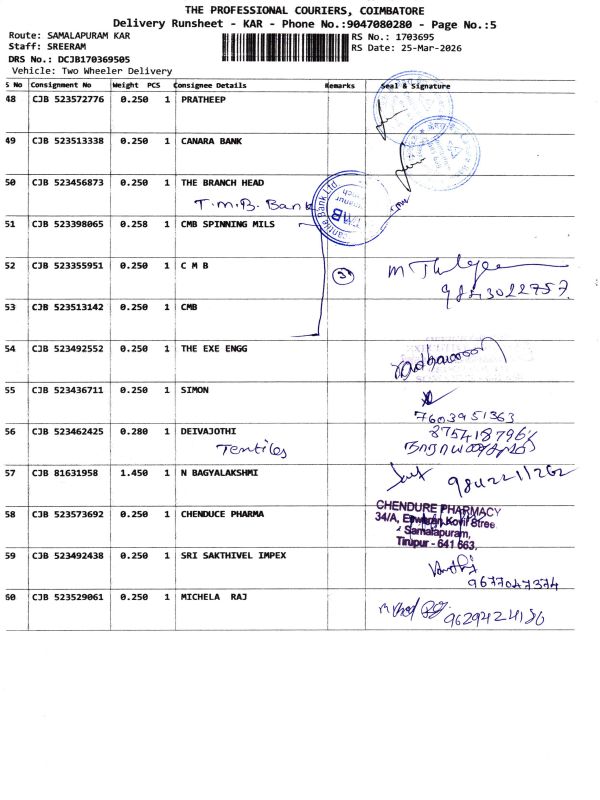 THE PROFESSIONAL COURIERS, COIMBATORE
Delivery Runsheet - KAR - Phone No.:9047080280 - Page No.:5
Route: SAMALAPURAM KAR
Staff: SREERAM
DRS No.: DCJB170369505
Vehicle: Two Wheeler Delivery
RS No.: 1703695
RS Date: 25-Mar-2026
S No Consignment No Weight PCS Consignee Details Remarks Seal & Signature
48 CJB 523572776 0.250 1 PRATHEEP
49 CJB 523513338 0.250 1 CANARA BANK
50 CJB 523456873 0.250 1 THE BRANCH HEAD
T.M.B. Bank
51 CJB 523398065 0.258 1 CMB SPINNING MILS
52 CJB 523355951 0.250 1 C M B
9843022757.
53 CJB 523513142 0.250 1 CMB
54 CJB 523492552 0.250 1 THE EXE ENGG
55 CJB 523436711 0.250 1 SIMON
7603951363
56 CJB 523462425 0.280 1 DEIVAJOTHI
Textiles
57 CJB 81631958 1.450 1 N BAGYALAKSHMI
58 CJB 523573692 0.250 1 CHENDUCE PHARMA
CHENDURE PHARMACY
34/A, Kovil Stree
Samalapuram,
Tirupur - 641 663.
59 CJB 523492438 0.250 1 SRI SAKTHIVEL IMPEX
9677047374
60 CJB 523529061 0.250 1 MICHELA RAJ